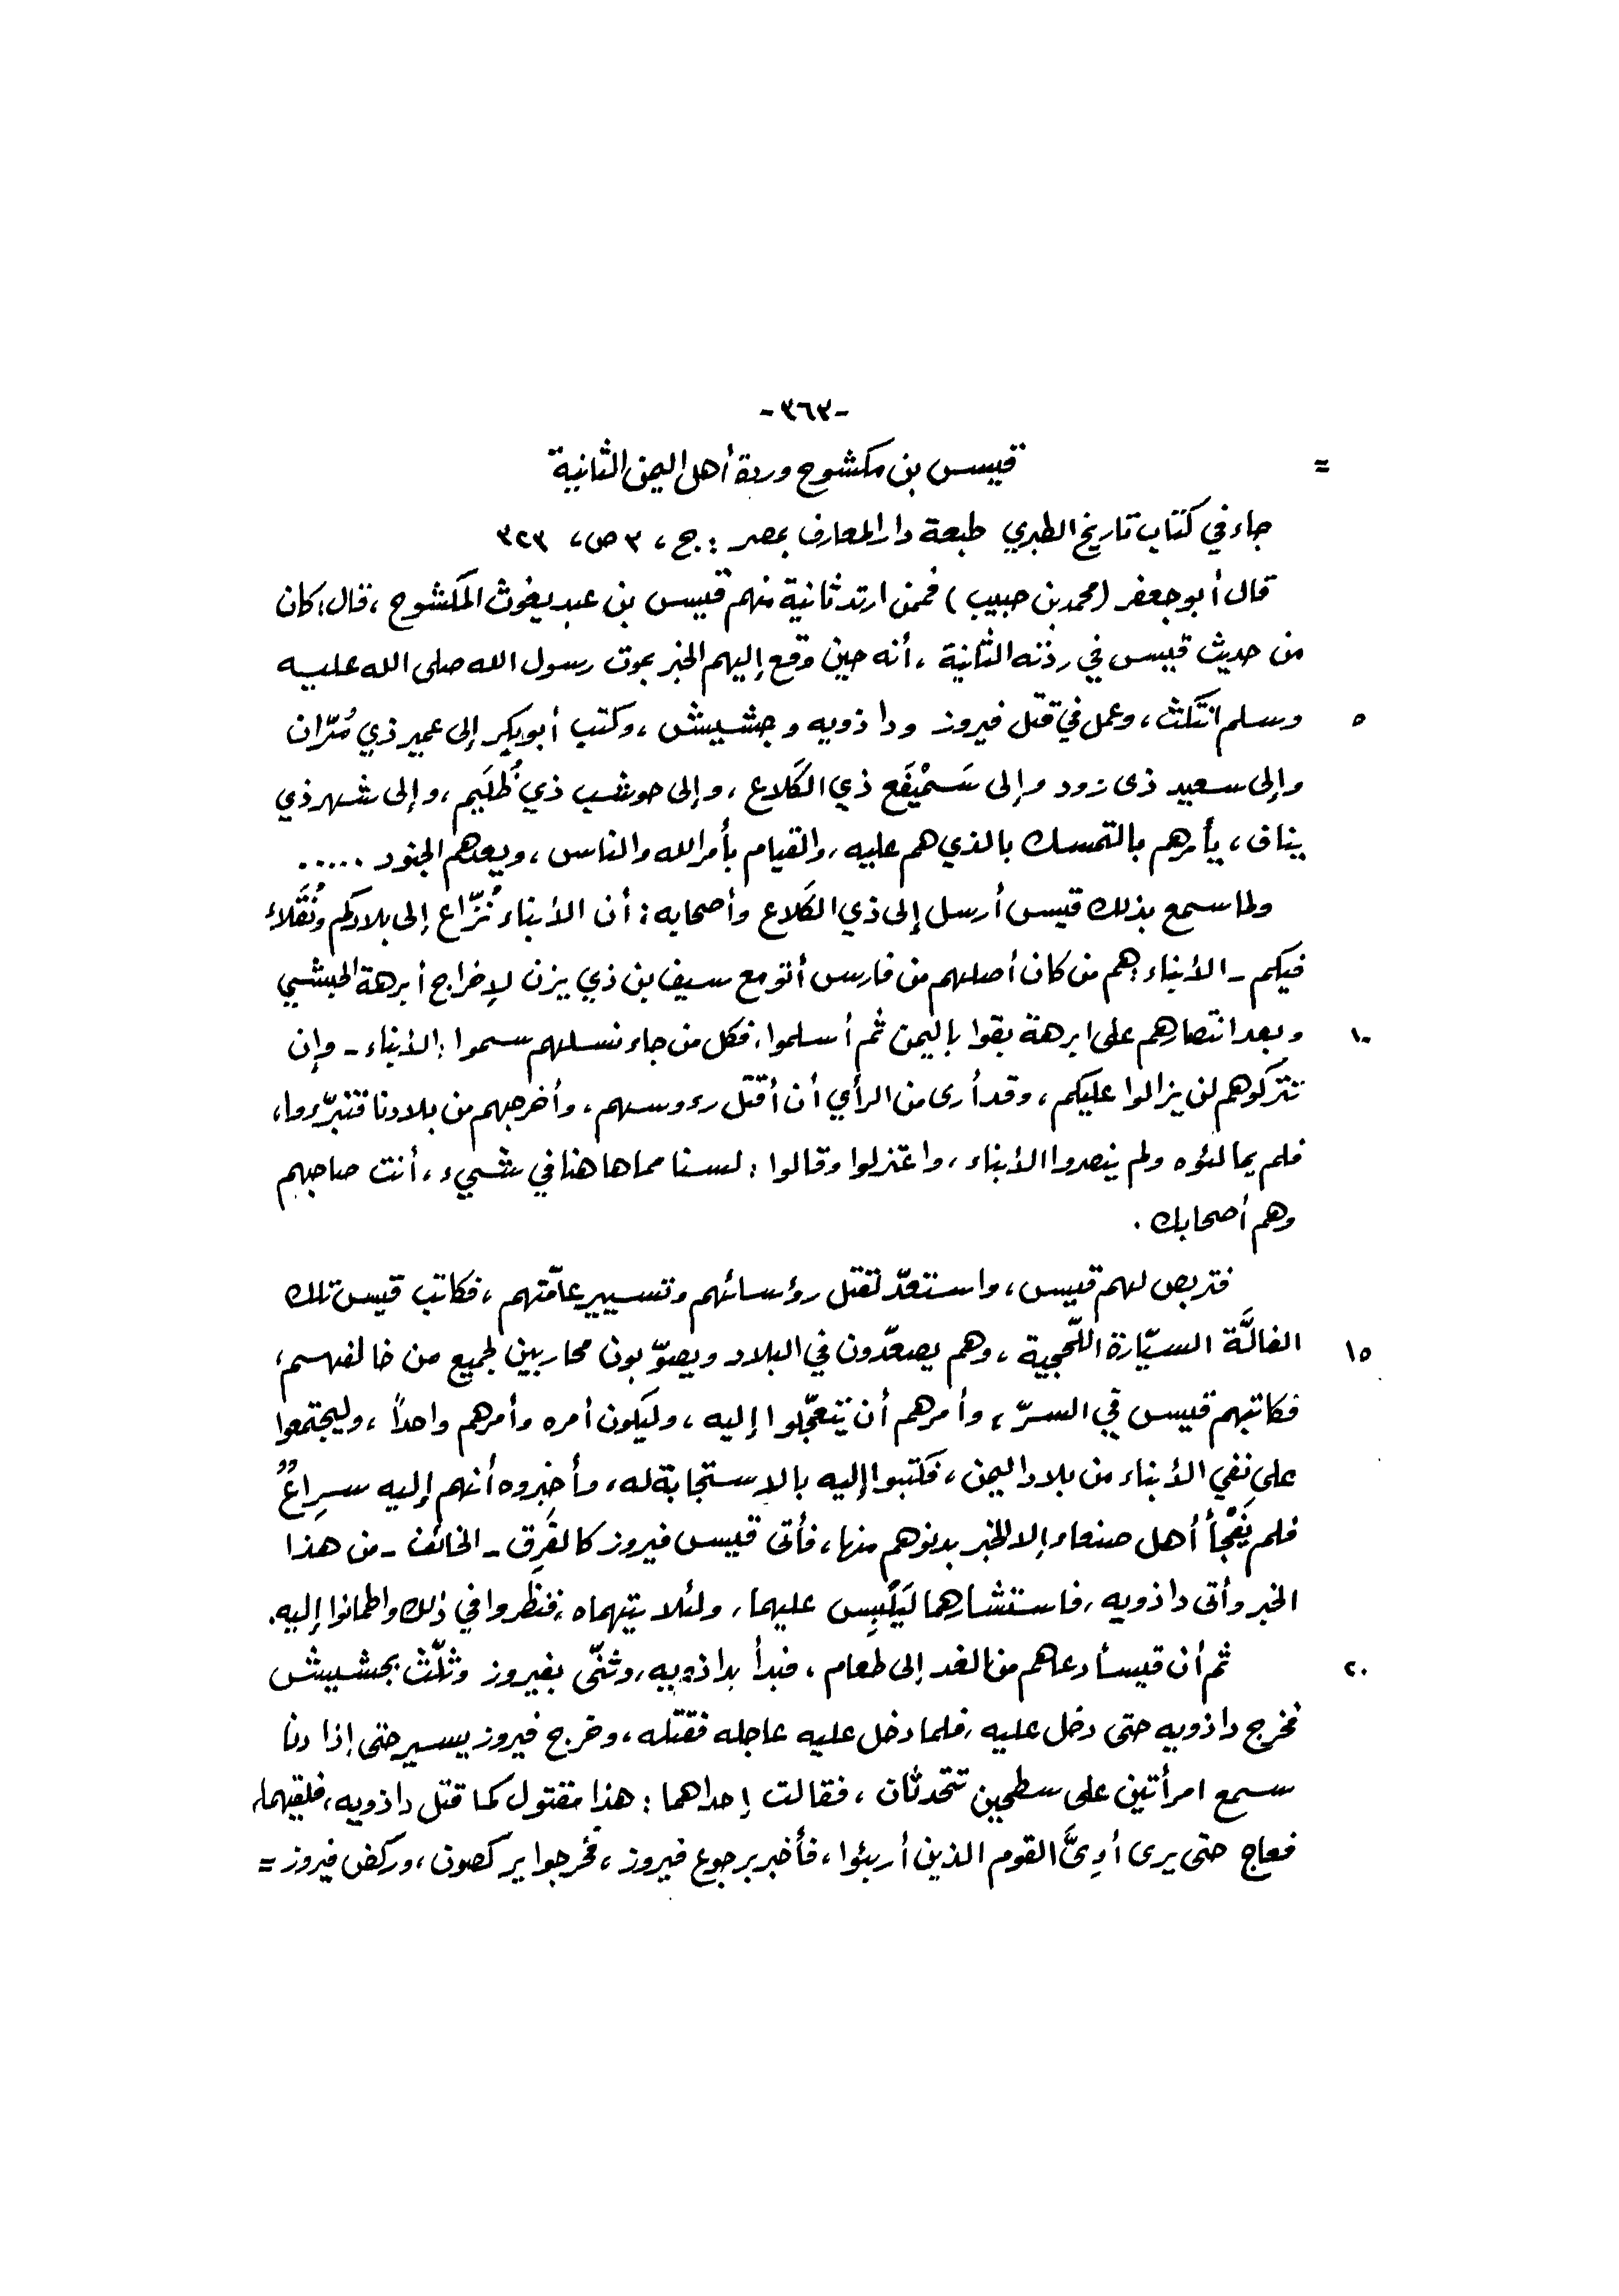 -٣٦٣-
= قيس بن مكشوح وردة أهل اليمن الثانية
جاء في كتاب تاريخ الطبري طبعة دار المعارف بمصر : ج ، ٣ ص ، ٣٢٣
قال أبو جعفر (محمد بن حبيب) فممن ارتد ثانية منهم قيس بن عبد يغوث المكشوح ، قال : كان
من حديث قيس في ردّته الثانية ، أنه حين وقع إليهم الخبر بموت رسول الله صلى الله عليه
٥ وسلم انتكث ، وعمل في قتل فيروز وداذويه وجشيش ، وكتب أبو بكر إلى عمير ذي مُرّان
وإلى سعيد ذى زود وإلى سَمَيْفَع ذي الكَلاع ، وإلى حوشب ذي ظُلَيم ، وإلى شهر ذي
يناف ، يأمرهم بالتمسك بالذي هم عليه ، والقيام بأمر الله والناس ، ويعدهم الجنود .....
ولما سمع بذلك قيس أرسل إلى ذي الكَلاع وأصحابه : أن الأبناء نُزّاع إلى بلادكم ونُقَلاء
فيكم - الأبناء : هم من كان أصلهم من فارس أتو مع سيف بن ذي يزن لإخراج أبرهة الحبشي
١٠ وبعد انتصارهم على ابرهة بقوا باليمن ثم أسلموا ، فكل من جاء نسلهم سموا : الأبناء - وإن
تتركوهم لن يزالوا عليكم ، وقد أرى من الرأي أن أقتل رءوسهم ، وأخرجهم من بلادنا فتبرّءوا ،
فلم يمالئوه ولم ينصروا الأبناء ، واعتزلوا وقالوا : لسنا مما هاهنا في شيء ، أنت صاحبهم
وهم أصحابك .
فتربص لهم قيس ، واستعدّ لقتل رؤسائهم وتسيير عامّتهم ، فكاتب قيس تلك
١٥ الفالَّة السيّارة اللّحجية ، وهم يصعّدون في البلاد ويصوّبون محاربين لجميع من خالفهم ،
فكاتبهم قيس في السرّ ، وأمرهم أن يتعجّلوا إليه ، وليكون أمره وأمرهم واحداً ، وليجتمعوا
على نفي الأبناء من بلاد اليمن ، فكتبوا إليه بالاستجابة له ، وأخبروه أنهم إليه سِراعٌ
فلم يَفْجأ أهل صنعاء إلا الخبر بدنوهم منها ، فأتى قيس فيروز كالفَرِق - الخائف - من هذا
الخبر وأتى داذويه ، فاستشارهما لَيَلْبِس عليهما ، ولئلا يتهماه ، فنظروا في ذلك واطمانوا إليه .
٢٠ ثم أن قيسأ دعاهم من الغد إلى طعام ، فبدأ بداذويه ، وثنّى بفيروز وثلّث بجشيش
فخرج داذويه حتى دخل عليه ، فلما دخل عليه عاجله فقتله ، وخرج فيروز يسير حتى إذا دنا
سمع امرأتين على سطحين تتحدثان ، فقالت إحداهما : هذا مقتول كما قتل داذويه ، فلقيهما ،
فعاج حتى يرى أوِىَّ القوم الذين أربئوا ، فأخبر برجوع فيروز ، فخرجوا يركضون ، وركض فيروز =